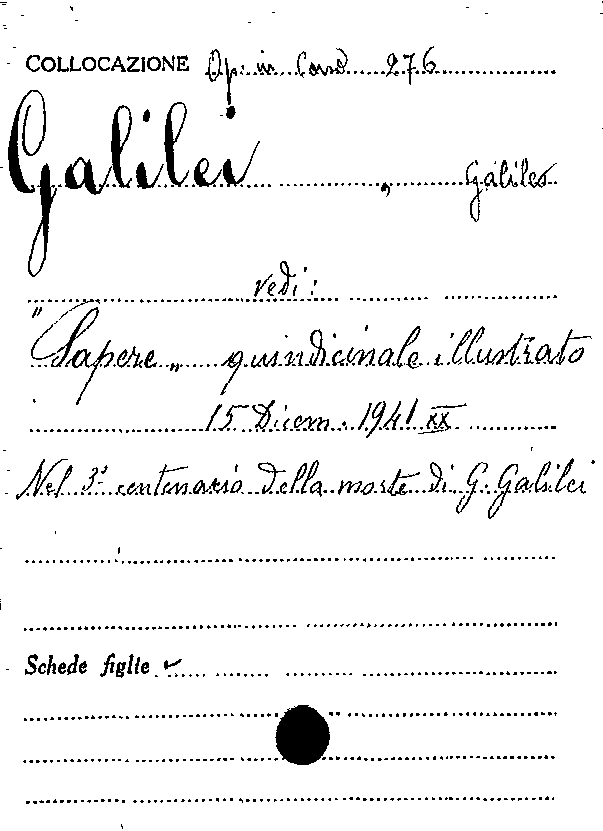 COLLOCAZIONE Op. in Cons 276
Galilei , Galileo
vedi:
"Sapere„ quindicinale illustrato
15 Dicem. 1941 XX
Nel 3° centenario della morte di G. Galilei
Schede figlie